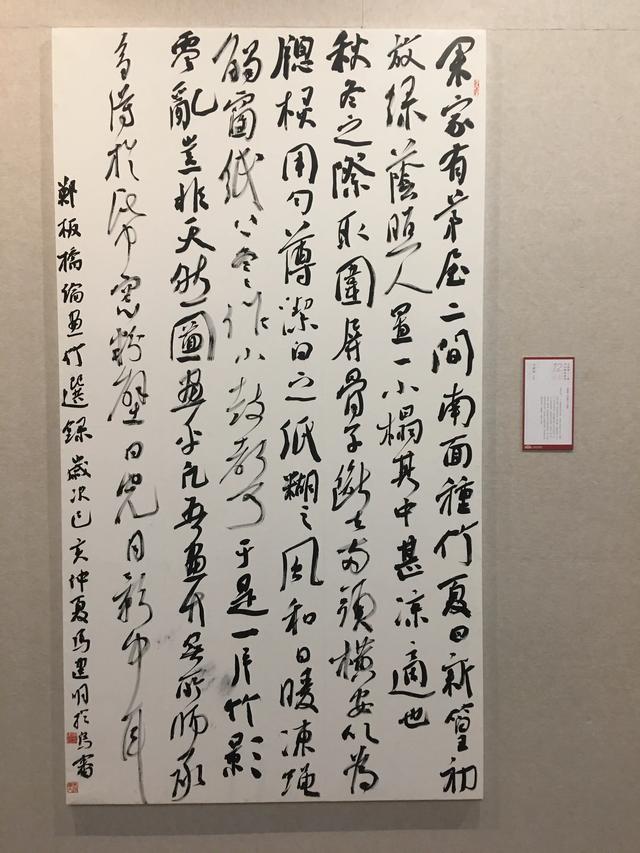 余家有茅屋二間南面種竹夏日新篁初
放綠蔭照人置一小榻其中甚涼適也
秋冬之際取圍屏骨子斷去兩頭橫安以為
牕櫺用勻薄潔白之紙糊之風和日暖凍蠅
觸窗紙上冬冬作小鼓聲于是一片竹影
零亂豈非天然圖畫乎凡吾畫竹無所師承
多得於紙窗粉壁日光月影中耳
鄭板橋論畫竹選錄歲次己亥仲夏馬建明於烏審